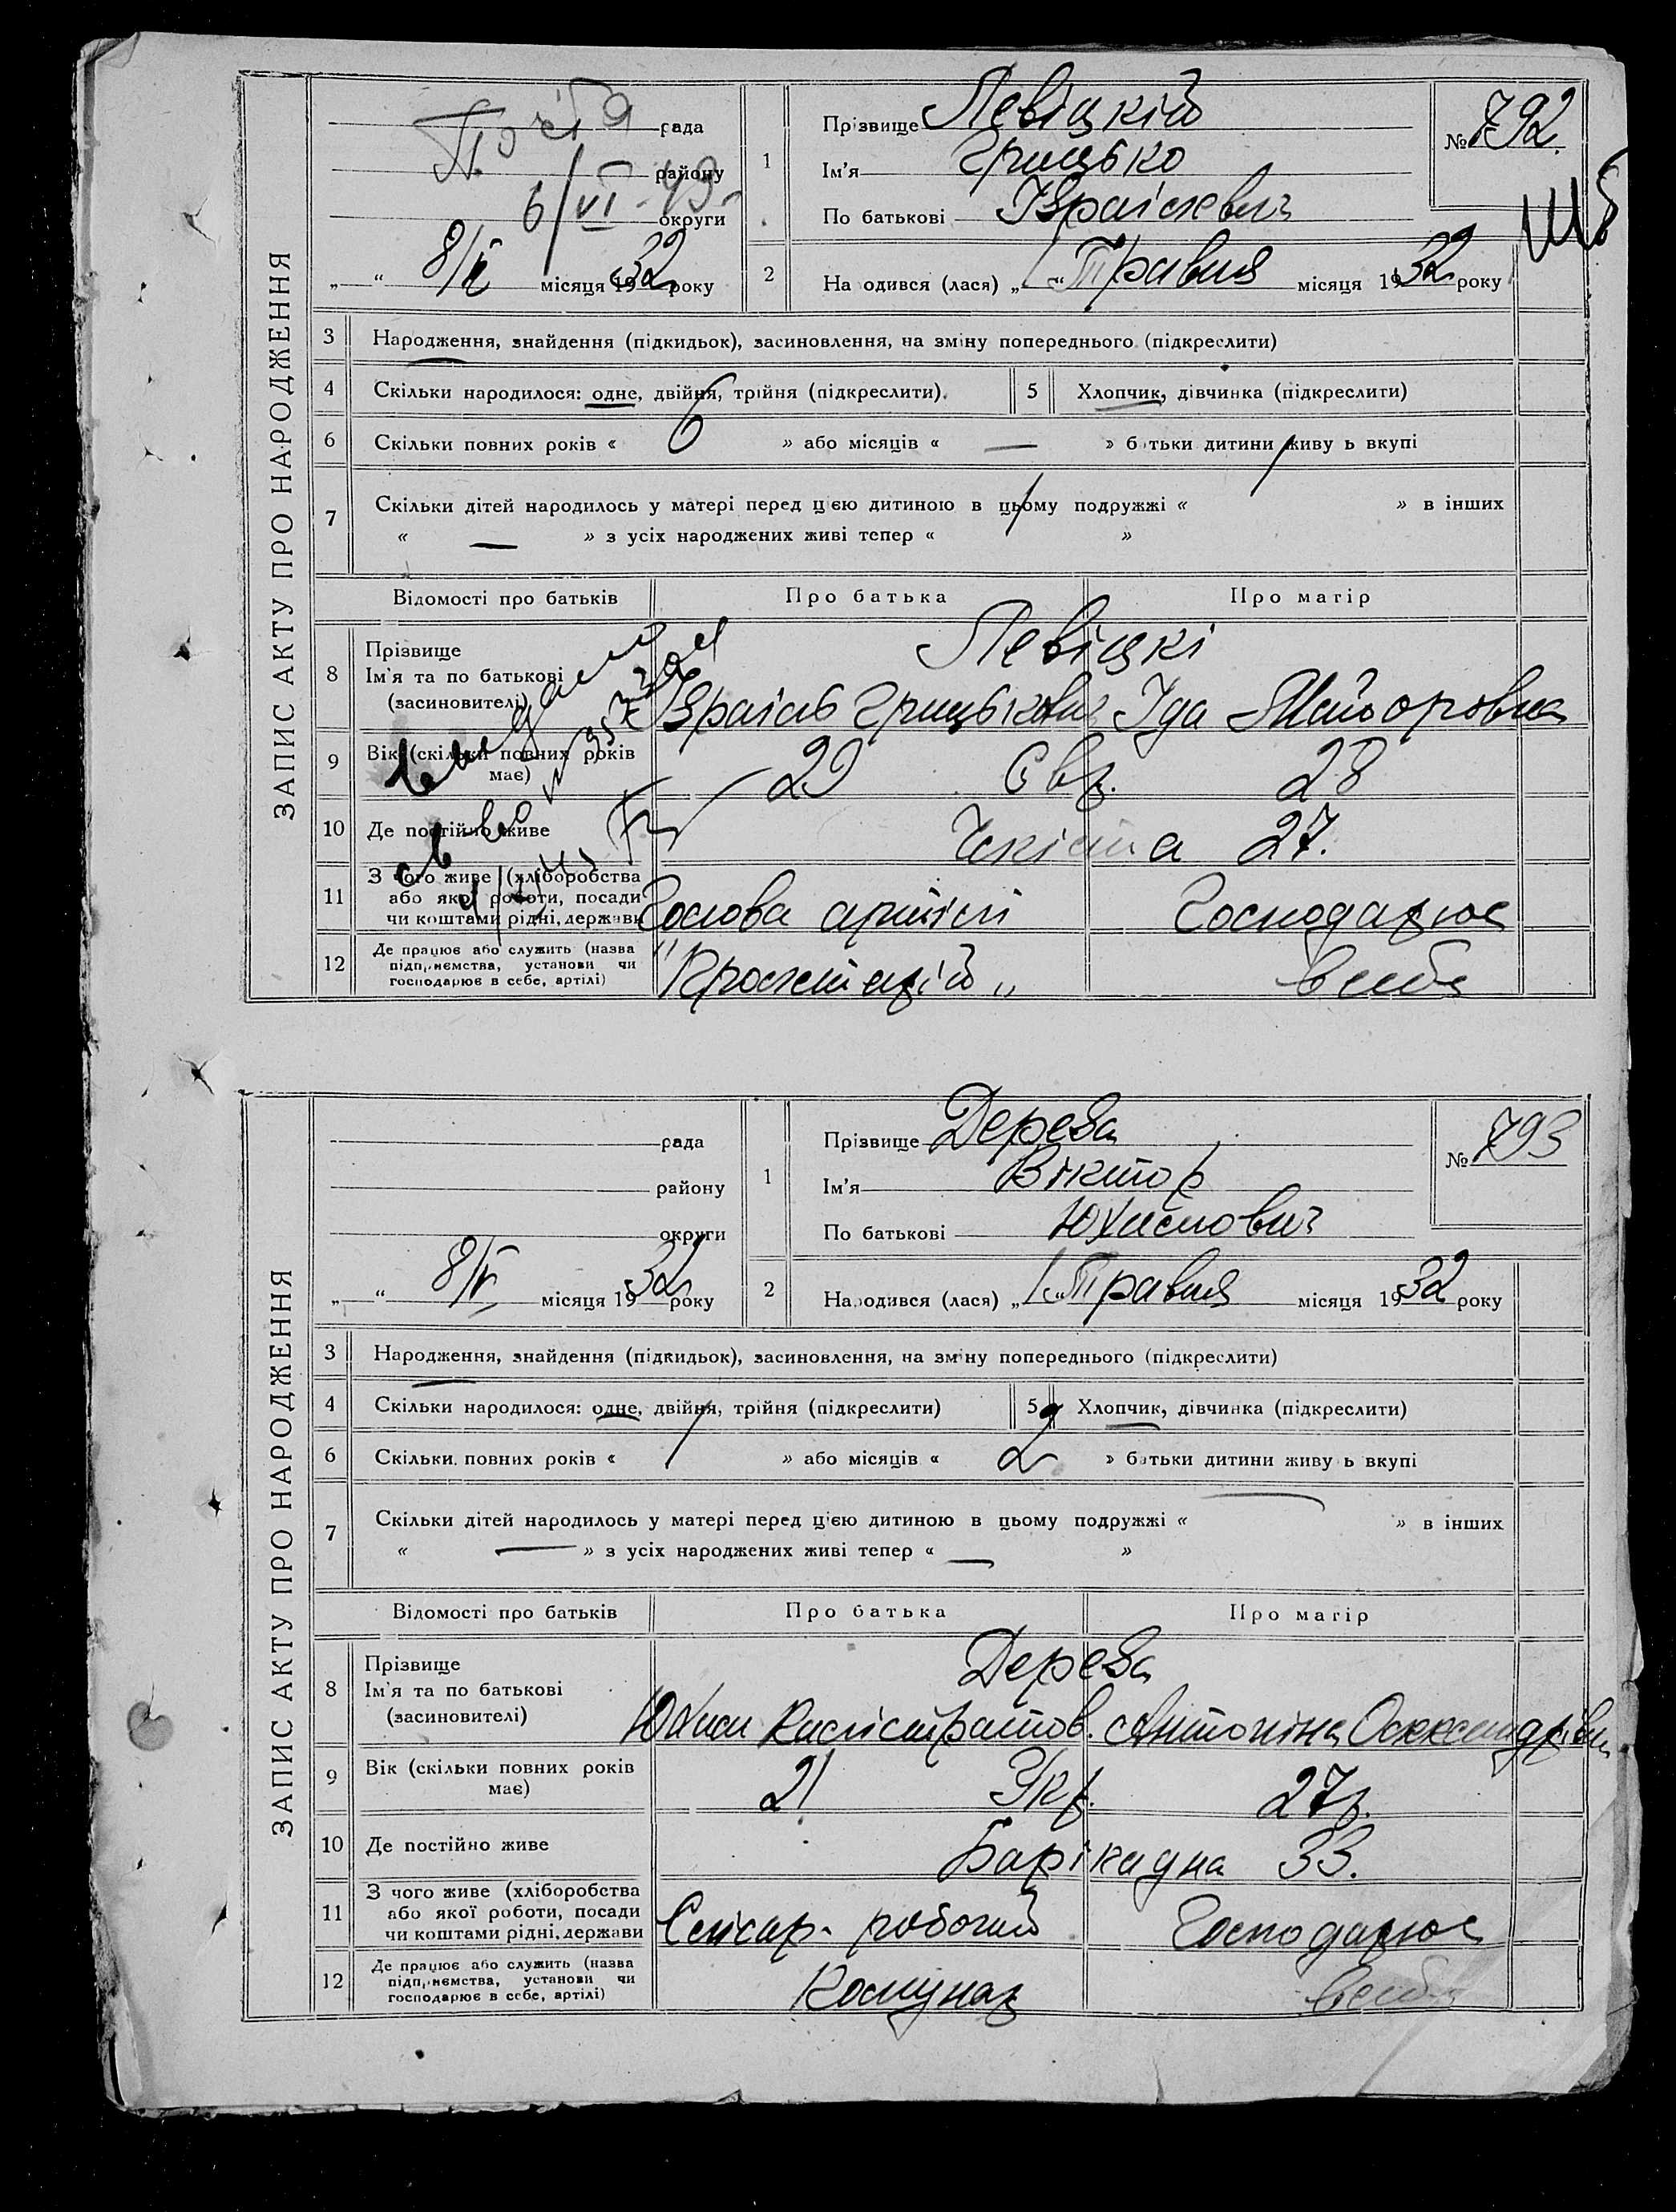 ЗАПИС АКТУ ПРО НАРОДЖЕННЯ
рада
району
6/VI
округи
„ “ 8/V місяця 1932 року
1
Прізвище Левіцкій
Ім'я Грицько
По батькові Ізраілевич
№ 792
2
На одився (лася) „1“ Травня місяця 1932 року
3 Народження, знайдення (підкидьок), засиновлення, на зміну попереднього (підкреслити)
4 Скільки народилося: одне, двійня, трійня (підкреслити).
5 Хлопчик, дівчинка (підкреслити)
6 Скільки повних років « 6 » або місяців « — » б тьки дитини живу ь вкупі
7 Скільки дітей народилось у матері перед цією дитиною в цьому подружжі « 1 » в інших
« — » з усіх народжених живі тепер « 1 »
Відомості про батьків
Про батька
Про матір
8 Прізвище
Ім'я та по батькові
(засиновителі)
Левіцкі
Ізраіль Грицькович Іда Майоровна
9 Вік (скільки повних років має)
29 Євр. 28
10 Де постійно живе
Чекіста 27.
11 З чого живе (хліборобства
або якої роботи, посади
чи коштами рідні, держави
Голова артілі Господарює
12 Де працює або служить (назва
підпр емства, установи чи
господарює в себе, артілі)
вдома
ЗАПИС АКТУ ПРО НАРОДЖЕННЯ
рада
району
округи
„ “ 8/V місяця 1932 року
1
Прізвище Дерева
Ім'я Віктор
По батькові Юхимович
№ 793
2
Народився (лася) „1“ Травня місяця 1932 року
3 Народження, знайдення (підкидьок), засиновлення, на зміну попереднього (підкреслити)
4 Скільки народилося: одне, двійня, трійня (підкреслити)
5 Хлопчик, дівчинка (підкреслити)
6 Скільки повних років « 1 » або місяців « 2 » батьки дитини живу ь вкупі
7 Скільки дітей народилось у матері перед цією дитиною в цьому подружжі « — » в інших
« — » з усіх народжених живі тепер « — »
Відомості про батьків
Про батька
Про матір
8 Прізвище
Ім'я та по батькові
(засиновителі)
Дерева
Юхим Калістратов. Антоніна Олександрівн.
9 Вік (скільки повних років має)
21 Укр. 27р.
10 Де постійно живе
Барікадна 33.
11 З чого живе (хліборобства
або якої роботи, посади
чи коштами рідні, держави
Слісар- робочий Господарює
12 Де працює або служить (назва
підпр ємства, установи чи
господарює в себе, артілі)
Комунар